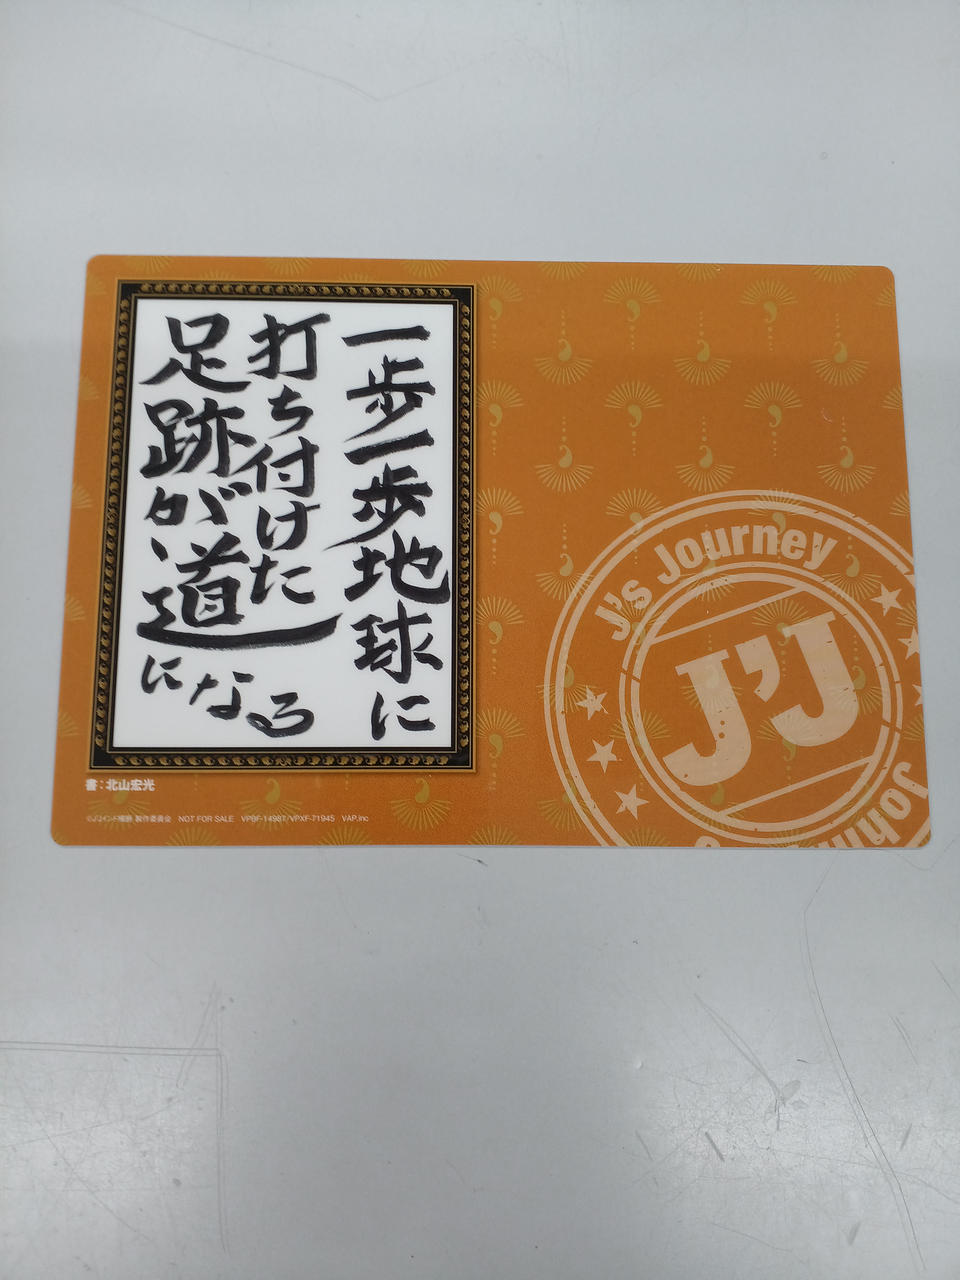 一歩一歩地球に
打ち付けた
足跡が、道
になる
書：北山宏光
©J'Jインド横断 製作委員会 NOT FOR SALE VPBF-14987/VPXF-71945 VAP.inc
J's Journey
J'J